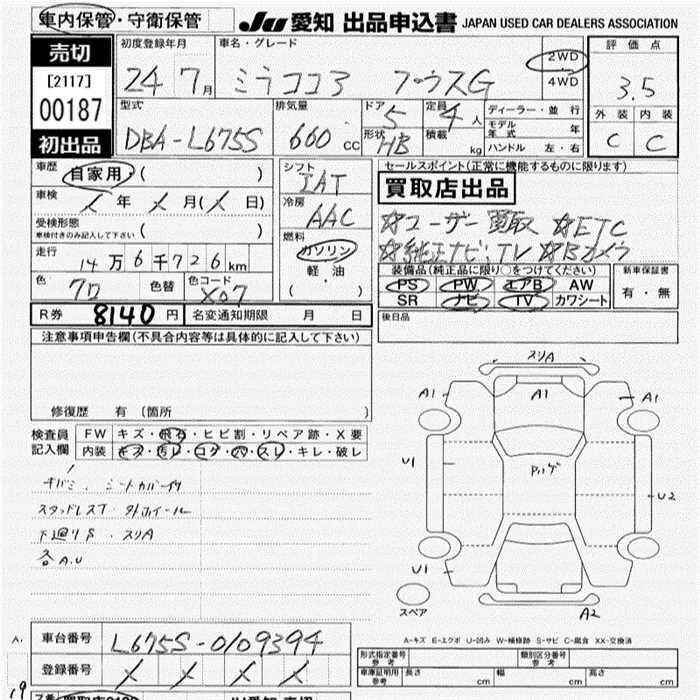 車内保管・守衛保管
JU 愛知 出品申込書 JAPAN USED CAR DEALERS ASSOCIATION
売切
[2117]
00187
初出品
初度登録年月
24 7月
車名・グレード
ミラココア プラスG
2WD
4WD
評価点
3.5
外装 内装
C C
型式
DBA-L675S
排気量
660 cc
ドア 5
形状 HB
定員 4人
積載 kg
ディーラー・並行
モデル年式 年
ハンドル 左・右
車歴
自家用・( )
車検
年 月( 日)
受検形態
車検付きのみ記入して下さい ( )
走行
14万6千726km
色 色替 色コード
X07
シフト
IAT
冷房
AAC
燃料
ガソリン
軽・油
( )
セールスポイント(正常に機能するものに限ります)
買取店出品
☆ユーザー買取 ☆ETC
☆純正ナビ、TV ☆Bカメラ
装備品(純正品に限り○をつけてください)
PS PW エアB AW
SR ナビ TV カワシート
新車保証書
有・無
R券 8140円 名変通知期限 月 日
後日品
注意事項申告欄(不具合内容等は具体的に記入して下さい)
修復歴 有 (箇所 )
検査員記入欄
FW キズ・飛石・ヒビ割・リペア跡・X要
内装 キズ・汚レ・コゲ・穴・スレ・キレ・破レ
キバミ、シートカバー付
スタッドレスT 外ホイール
下廻りS スリA
各A.U
スリA
A1 A1 A1
U1 U2
U1 A2
スペア
A-キズ E-エクボ U-凹み W-補修跡 S-サビ C-腐食 XX-交換済
車台番号 L675S-0109394
登録番号
形式指定番号 参考 類別区分番号 参考
車庫証明用 参考 長さ cm 幅 cm 高さ cm